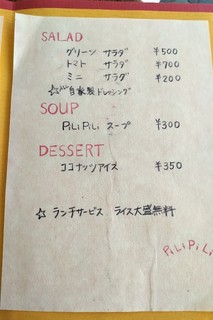 SALAD
グリーン サラダ ¥500
トマト サラダ ¥700
ミニ サラダ ¥200
☆自家製ドレッシング
SOUP
PiLiPiLi スープ ¥300
DESSERT
ココナッツアイス ¥350
☆ ランチサービス ライス大盛無料
PiLiPiLi